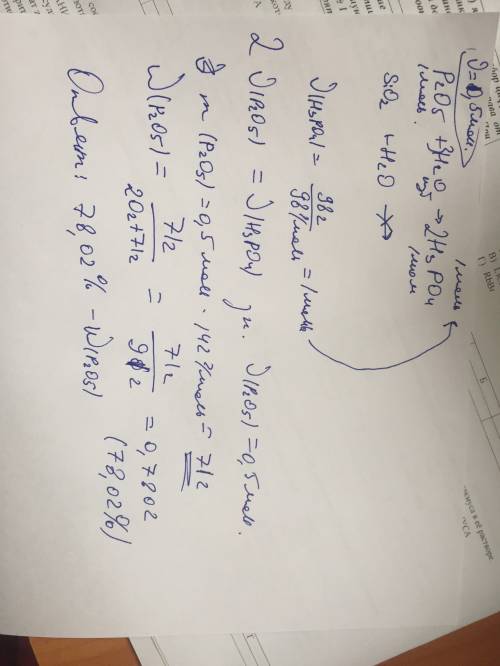 ν=0,5 моль.
P₂O₅ + 3H₂O → 2H₃PO₄
изб
1 моль
1 моль.
SiO₂ + H₂O
ν(H₃PO₄) = 98 г / 98 г/моль = 1 моль
2 ν(P₂O₅) = ν(H₃PO₄) ν(P₂O₅) = 0,5 моль.
m (P₂O₅) = 0,5 моль · 142 г/моль = 71г
W(P₂O₅) = 71г / 20г+71г = 71г / 91г = 0,7802
(78,02%)
Ответ: 78,02% – W(P₂O₅)